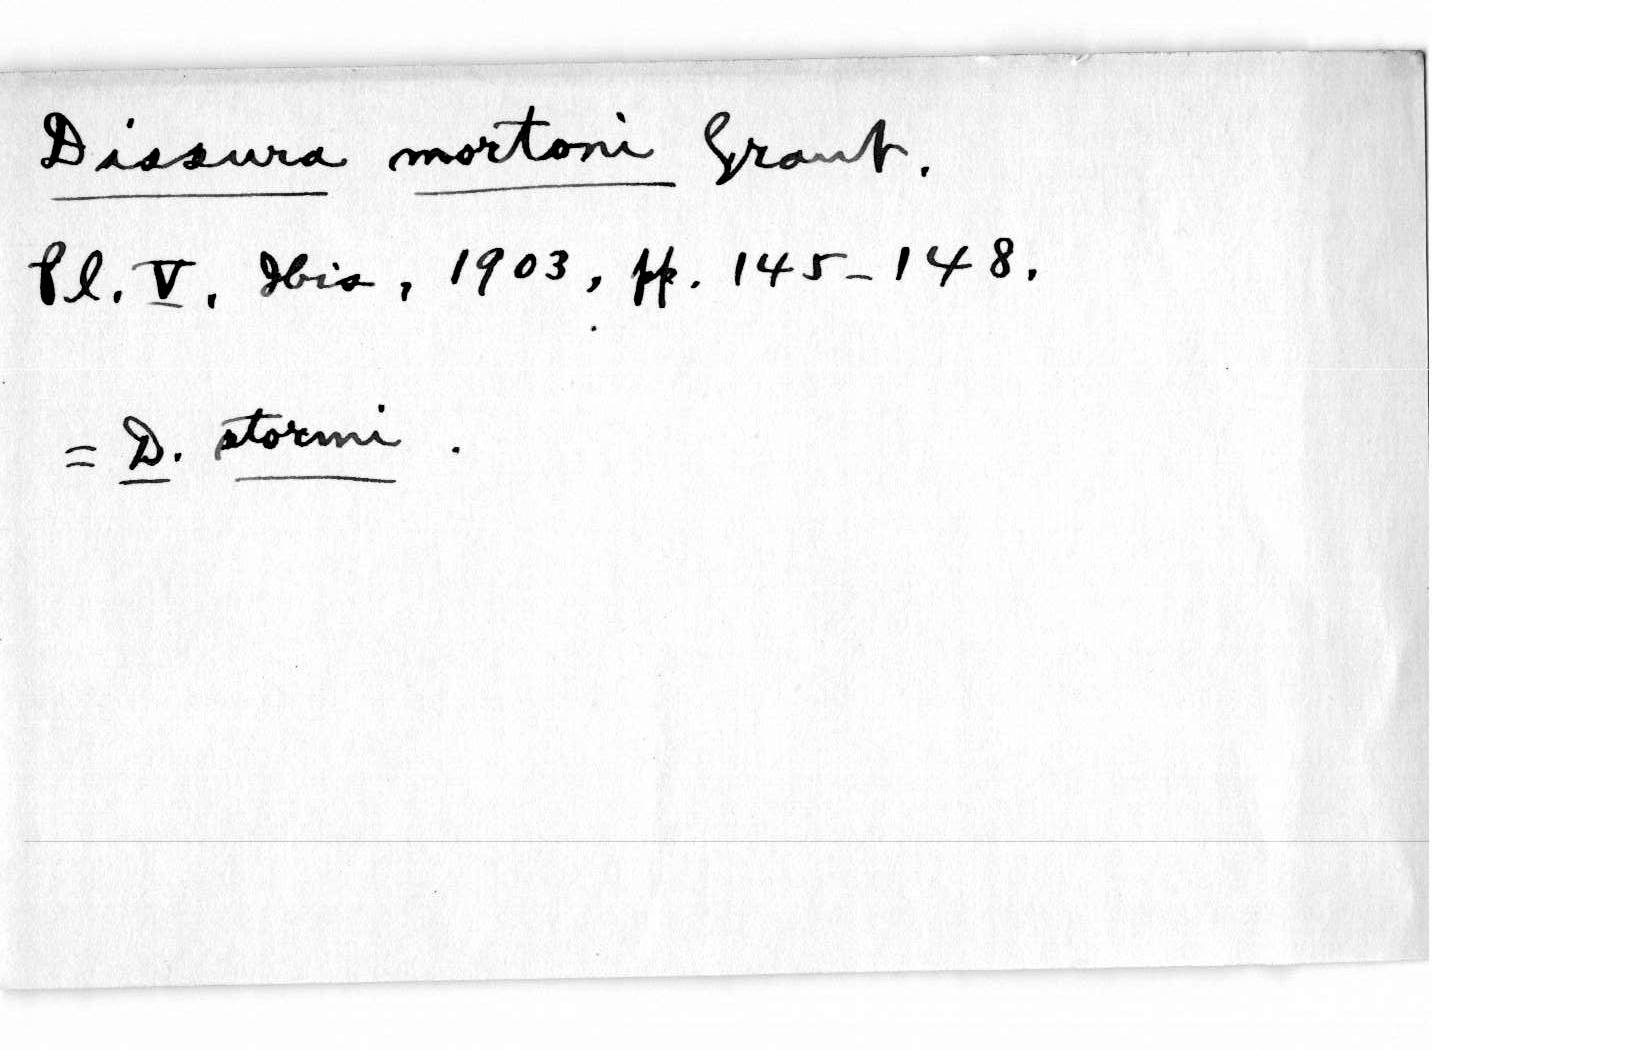 Dissura mortoni Grant.
Pl. V, Ibis, 1903, pp. 145-148.
= D. stormi.